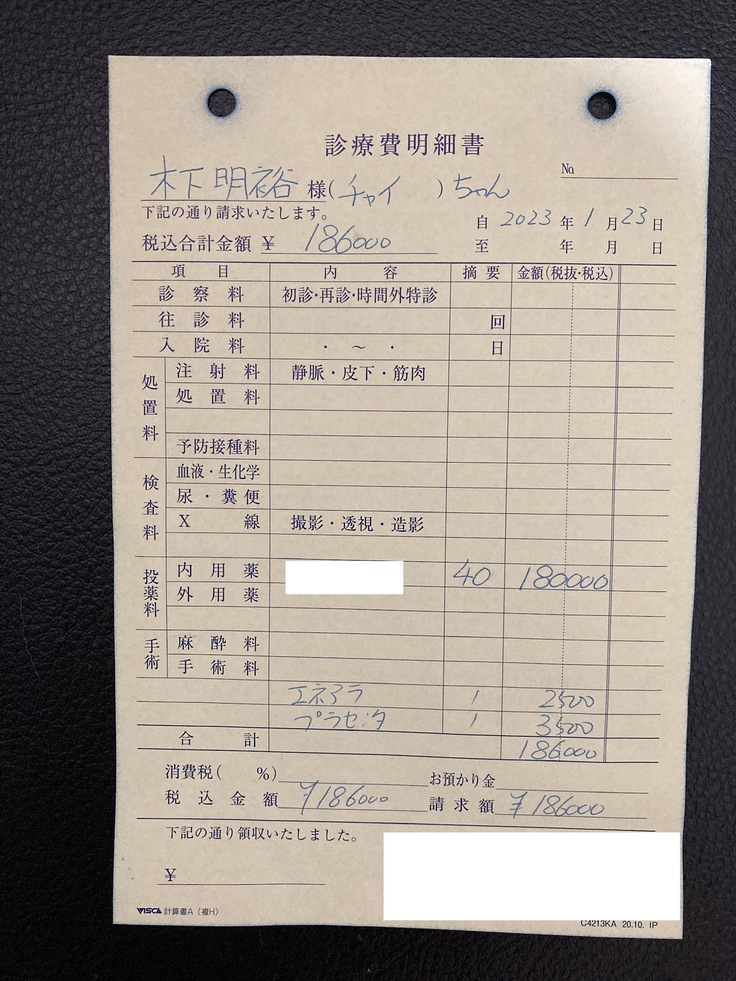 診療費明細書
No.
木下明裕 様(チャイ )ちゃん
下記の通り請求いたします。
自 2023 年 1 月 23 日
税込合計金額 ¥ 186000
至 年 月 日
項 目 内 容 摘 要 金額(税抜・税込)
診 察 料 初診・再診・時間外特診
往 診 料 回
入 院 料 ・ ～ ・ 日
処置料
注 射 料 静脈・皮下・筋肉
処 置 料
予防接種料
検査料
血液・生化学
尿・糞便
X 線 撮影・透視・造影
投薬料
内 用 薬 40 180000
外 用 薬
手術
麻 酔 料
手 術 料
エネアラ 1 2500
プラセンタ 1 3500
合 計 186000
消費税( %) お預かり金
税 込 金 額 ¥186000 請 求 額 ¥186000
下記の通り領収いたしました。
¥
VISCA 計算書A(複H)
C4213KA 20.10. IP